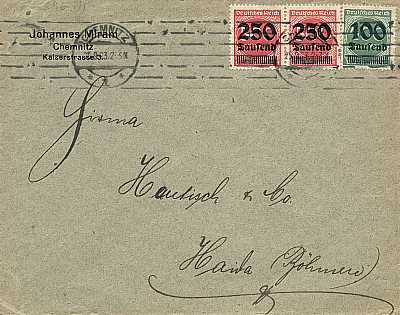 Johannes Mirau
Chemnitz
Kaiserstrasse 3.
CHEMNITZ
Deutsches Reich Deutsches Reich Deutsches Reich
250 250 100
Tausend Tausend Tausend
Firma
Hautisch & Co.
Haida (Böhmen)